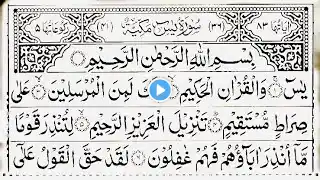 اٰيَاتُهَا ٨٣ (٣٦) سُوْرَةُ يٰسٓ مَكِّيَّةٌ (٤١) رُكُوْعَاتُهَا ٥
بِسْمِ اللّٰهِ الرَّحْمٰنِ الرَّحِيْمِ
يٰسٓ وَالْقُرْاٰنِ الْحَكِيْمِ لَمِنَ الْمُرْسَلِيْنَ عَلٰى
صِرَاطٍ مُّسْتَقِيْمٍ تَنْزِيْلَ الْعَزِيْزِ الرَّحِيْمِ لِتُنْذِرَ قَوْمًا
مَّآ اُنْذِرَ اٰبَآؤُهُمْ فَهُمْ غٰفِلُوْنَ لَقَدْ حَقَّ الْقَوْلُ عَلٰٓى